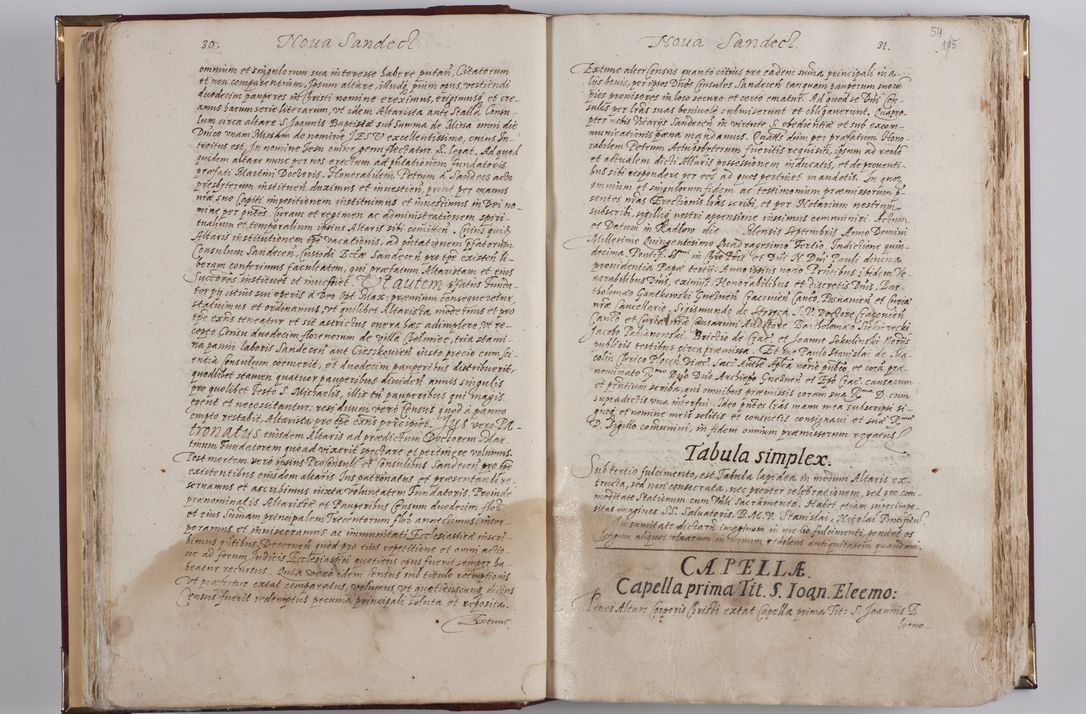 80. Noua Sandecz.
omnium et singulorum sua interesse habere putan. Citatorum
et non comparentium, Ipsum altare, illudq pium opus, vestiendi
duodecim pauperes in Christi nomine ereximus, erigimusq et cre-
amus harum serie literarum, vt idem Altarista ante Stalla Consu-
lum circa altare S. Joannis Baptistæ sub Summa de Missa omni die
Dnico vnam Missam de nomine JESV excellentissimo, cuius In-
troitus est, In nomine Jesu omne genu flectatur &. legat. Ad quod
quidem altare nunc per nos erectum ad pñtationem fundatoris
præfati Martini Doctoris, Honorabilem Petrum à Sandecz actu
presbyterum instituen duximus et inuestien, prout per manus
nræ suo Capiti impositionem instituimus et inuestimus in Dei no-
mine per pñtes. Curam et regimen ac administrationem spiri-
tualium et temporalium ipsius Altaris sibi comitten. Cuius quid
Altaris institutionem tpe vacationis, ad pñtationem pfatorum
Consulum Sandecen, Custodi Eccæ Sandecen pro tpe existen li-
beram conferimus facultatem, qui præfatum Altaristam et eius
Succores instituet et inuestiet. Vt autem pfatus Funda-
tor pij istius sui operis à Deo Opt Max: præmium consequeretur,
statuimus et ordinamus, vt quilibet Altarista modernus et pro
tpe exñs teneatur et sit astrictus onera hæc adimplere vt re-
cepto Censu duodecim florenorum de villa Chelmiec, tria stami-
na panni laboris Sandecen aut Cieszkouien iusto precio cum sci-
entia Consulum coëmerit, et duodecim pauperibus distribuerit,
quodlibet stamen quatuor pauperibus diuiden annis singulis
pro quolibet Festo S. Michaelis, illis tn pauperibus qui magis
egent et necessitantur: residuum vero Census quod à panno
empto restabit, Altarista pro tpe exñs percipiet. Jus vero Pa-
tronatus eiusdem Altaris ad prædictum Doctorem Mar-
tinum Fundatorem quoad vixerit spectare et pertinere volumus.
Post mortem vero ipsius Proconsuli et Consulibus Sandecen pro tpe
existentibus eiusdem altaris Jus patronatus et præsentandi re-
seruamus et ascribimus iuxta voluntatem Fundatoris. Proinde
prænominatis Altaristæ et Pauperibus Censum duodecim flor.
et eius Summam principalem Trecentorum flor. annectimus, incor-
poramus et inuisceramus ac immunitati Ecclesiasticæ inscri-
bimus
ne ad forum Judicis Ecclesiastici quoties opus fuerit semper ha-
beatur recursus. Quia vero idem Census sub titulo reemptionis
vt præfertur extat comparatus, volumus vt quotienscunq dictus
Census fuerit redemptus pecunia principali soluta et reposita.
Extunc
Noua Sandecz. 81.
54
105
Extunc alter Census quanto citius pro eadem suma principali in a-
lijs bonis, per ipsos Dños Consules Sandecen tanquam pauperum huius
pios prouisores in loco securo et certo ematur. Ad quod se Dni Con-
sules per lras suas beniuole submiserunt et obligauerunt. Quapro-
pter vobis Vicarijs Sandecen in virtute S. obedientiæ et sub excom-
municationis pæna mandamus. Quads dum per præfatum Hono-
rabilem Petrum Actupresbyterum fueritis requisiti, ipsum ad realē
et actualem dicti Altaris possessionem inducatis, et de prouenti-
bus sibi respondere per eos ad quos pertinet mandetis. In quor
omnium et singulorum fidem ac testimonium præmissorum p-
sentes nras Erectionis lras scribi, et per Notarium nostrum
subscribi, sigilliq nostri appensione iussimus communiri. Actum
et Datum in Radlow die Mensis Septembris Anno Domini
Millesimo Quingentesimo Quadragesimo Tertio, Indictione quin-
decima, Pontif. Ssmi in Chro Pris et Dni N. Dni Pauli diuina
prouidentia Papæ tertij: Anno ipsius nono Prntibus ibidem Ve-
nerabilibus Dnis, eximijs Honorabilibus et discretis Dnis, Bar-
tholomæo Gantkowski Gnesnen Cracouien Canco, Posnanien et Curiæ
nræ Cancellario. Sigismundo de V.J. Doctore Cracouien
Canco et Curiæ nræ causarum Auditore Bartholomæo
Jacobo Paijanowski, Brictio de Crac. et Joanne Sokulinski Notijs
publicis testibus circa præmissa. Et me Paulo Stanislai de Na-
colin Clerico Plocen Diæc. Sac. Auth: Apla notrio publico, et corā præ-
nominato Rmo Dño Dño Archiepo Gnesnen et Epo Crac. causarum
et prntium scriba, qui omnibus præmissis coram sua Rma D. cum
supradictis vna interfui. Ideo pñtes lras manu mea subscripsi si-
gnoq et nomine meis solitis et consuetis consignaui et suæ Rmæ
D. Sigillo communiui, in fidem omnium præmissorum rogatus.
Tabula simplex.
Sub tertio fulcimento, est Tabula lapidea in modum Altaris ex-
tructa, sed non consecrata, nec propter celebrationem, sed pro com-
moditate Stationum cum Vnli Sacramento. Habet etiam superimpo-
sitas imagines SS. Saluatoris B.M.V. Stanislai, Nicolai Pontificū.
In sumitate dictarū imaginum in medio fulcimenti, pendet os
longum alicuius redolens antiquitatem quandam.
CAPELLÆ.
Capella prima Tit. S. Ioan. Eleemo:
Penes Altare Corporis Christi extat Capella prima Tit: S. Joannis E-
leemo